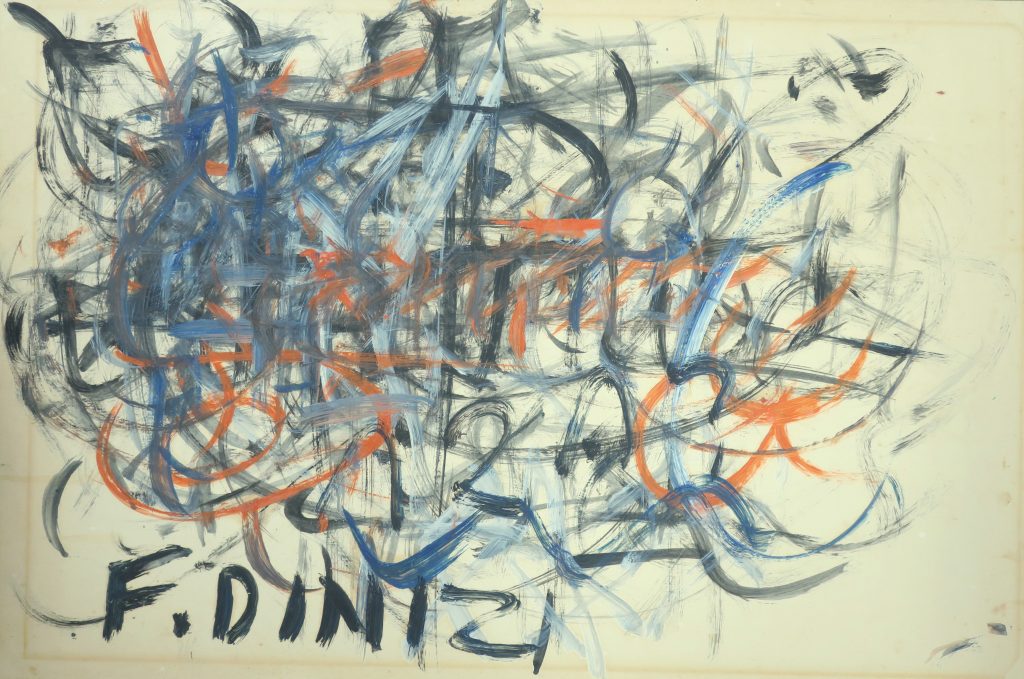 F. DINIZI